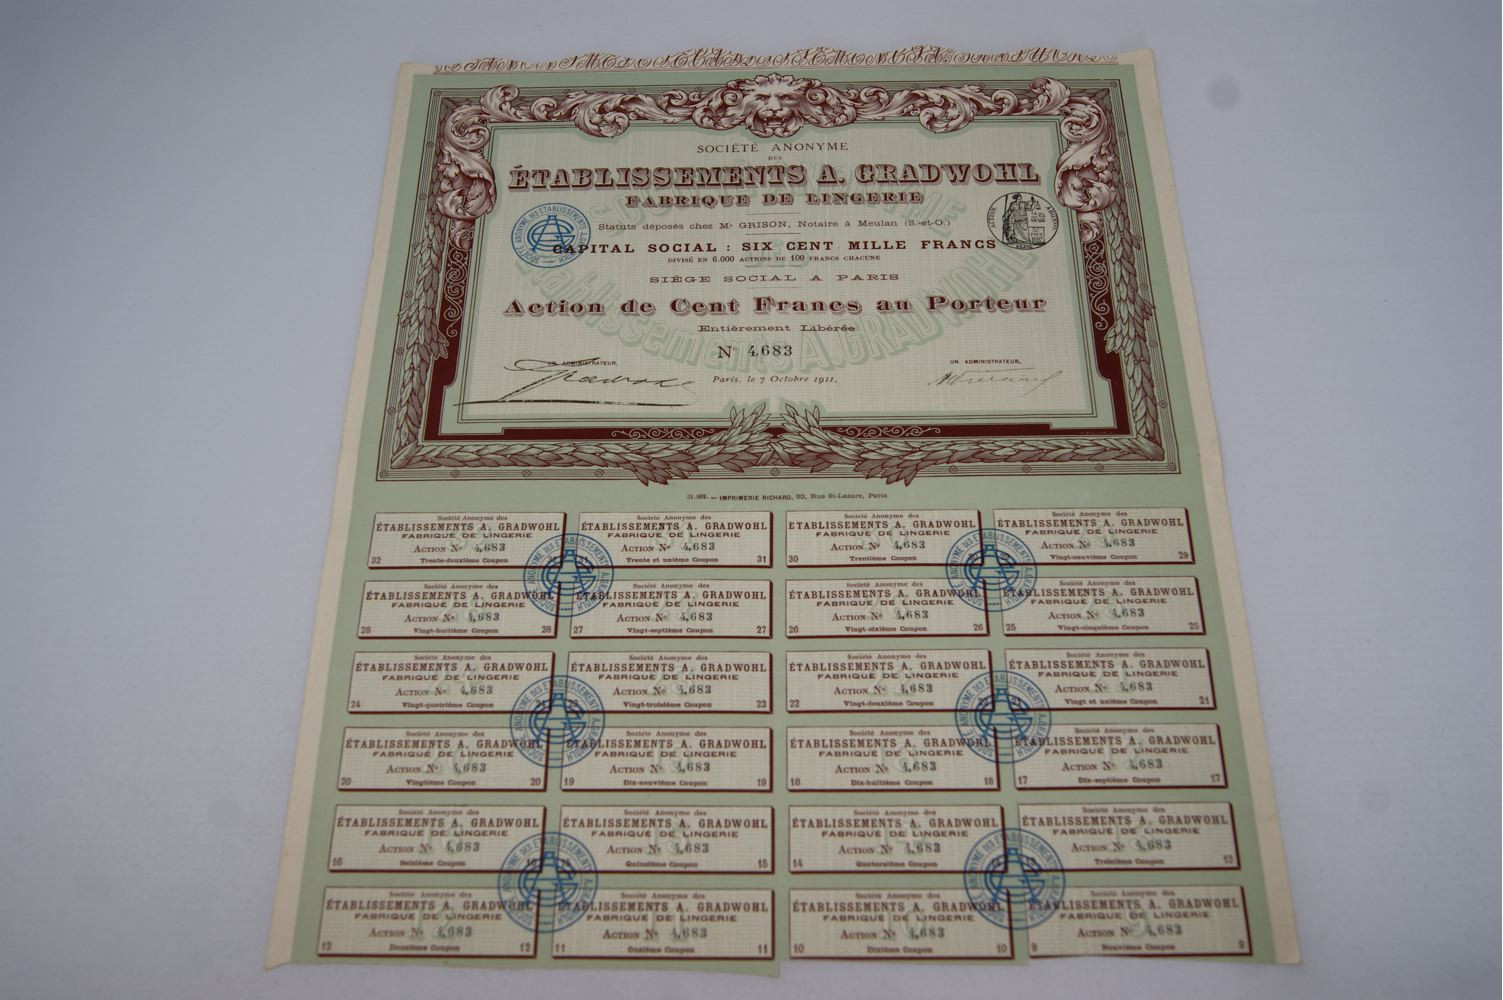 SOCIÉTÉ ANONYME
DES
ÉTABLISSEMENTS A. GRADWOHL
FABRIQUE DE LINGERIE
Statuts déposés chez Me GRISON, Notaire à Meulan (S.-et-O.)
CAPITAL SOCIAL : SIX CENT MILLE FRANCS
DIVISÉ EN 6.000 ACTIONS DE 100 FRANCS CHACUNE
SIÈGE SOCIAL A PARIS
Action de Cent Francs au Porteur
Entièrement Libérée
No 4,683
UN ADMINISTRATEUR, UN ADMINISTRATEUR,
Paris, le 7 Octobre 1911.
IMPRIMERIE RICHARD, 92, Rue St-Lazare, Paris
Société Anonyme des
ÉTABLISSEMENTS A. GRADWOHL
FABRIQUE DE LINGERIE
ACTION No 4,683
32 Trente-deuxième Coupon
Société Anonyme des
ÉTABLISSEMENTS A. GRADWOHL
FABRIQUE DE LINGERIE
ACTION No 4,683
Trente et unième Coupon 31
Société Anonyme des
ÉTABLISSEMENTS A. GRADWOHL
FABRIQUE DE LINGERIE
ACTION No 4,683
30 Trentième Coupon
Société Anonyme des
ÉTABLISSEMENTS A. GRADWOHL
FABRIQUE DE LINGERIE
ACTION No 4,683
Vingt-neuvième Coupon 29
Société Anonyme des
ÉTABLISSEMENTS A. GRADWOHL
FABRIQUE DE LINGERIE
ACTION No 4,683
28 Vingt-huitième Coupon 28
Société Anonyme des
ÉTABLISSEMENTS A. GRADWOHL
FABRIQUE DE LINGERIE
ACTION No 4,683
27 Vingt-septième Coupon 27
Société Anonyme des
ÉTABLISSEMENTS A. GRADWOHL
FABRIQUE DE LINGERIE
ACTION No 4,683
26 Vingt-sixième Coupon 26
Société Anonyme des
ÉTABLISSEMENTS A. GRADWOHL
FABRIQUE DE LINGERIE
ACTION No 4,683
25 Vingt-cinquième Coupon 25
Société Anonyme des
ÉTABLISSEMENTS A. GRADWOHL
FABRIQUE DE LINGERIE
ACTION No 4,683
24 Vingt-quatrième Coupon 24
Société Anonyme des
ÉTABLISSEMENTS A. GRADWOHL
FABRIQUE DE LINGERIE
ACTION No 4,683
23 Vingt-troisième Coupon 23
Société Anonyme des
ÉTABLISSEMENTS A. GRADWOHL
FABRIQUE DE LINGERIE
ACTION No 4,683
22 Vingt-deuxième Coupon
Société Anonyme des
ÉTABLISSEMENTS A. GRADWOHL
FABRIQUE DE LINGERIE
ACTION No 4,683
Vingt et unième Coupon 21
Société Anonyme des
ÉTABLISSEMENTS A. GRADWOHL
FABRIQUE DE LINGERIE
ACTION No 4,683
20 Vingtième Coupon 20
Société Anonyme des
ÉTABLISSEMENTS A. GRADWOHL
FABRIQUE DE LINGERIE
ACTION No 4,683
19 Dix-neuvième Coupon 19
Société Anonyme des
ÉTABLISSEMENTS A. GRADWOHL
FABRIQUE DE LINGERIE
ACTION No 4,683
18 Dix-huitième Coupon 18
Société Anonyme des
ÉTABLISSEMENTS A. GRADWOHL
FABRIQUE DE LINGERIE
ACTION No 4,683
17 Dix-septième Coupon 17
Société Anonyme des
ÉTABLISSEMENTS A. GRADWOHL
FABRIQUE DE LINGERIE
ACTION No 4,683
16 Seizième Coupon
Société Anonyme des
ÉTABLISSEMENTS A. GRADWOHL
FABRIQUE DE LINGERIE
ACTION No 4,683
Quinzième Coupon 15
Société Anonyme des
ÉTABLISSEMENTS A. GRADWOHL
FABRIQUE DE LINGERIE
ACTION No 4,683
14 Quatorzième Coupon
Société Anonyme des
ÉTABLISSEMENTS A. GRADWOHL
FABRIQUE DE LINGERIE
ACTION No 4,683
Treizième Coupon 13
Société Anonyme des
ÉTABLISSEMENTS A. GRADWOHL
FABRIQUE DE LINGERIE
ACTION No 4,683
12 Douzième Coupon 12
Société Anonyme des
ÉTABLISSEMENTS A. GRADWOHL
FABRIQUE DE LINGERIE
ACTION No 4,683
11 Onzième Coupon 11
Société Anonyme des
ÉTABLISSEMENTS A. GRADWOHL
FABRIQUE DE LINGERIE
ACTION No 4,683
10 Dixième Coupon 10
Société Anonyme des
ÉTABLISSEMENTS A. GRADWOHL
FABRIQUE DE LINGERIE
ACTION No 4,683
9 Neuvième Coupon 9
SOCIÉTÉ ANONYME DES ETABLISSEMENTS A. GRADWOLH